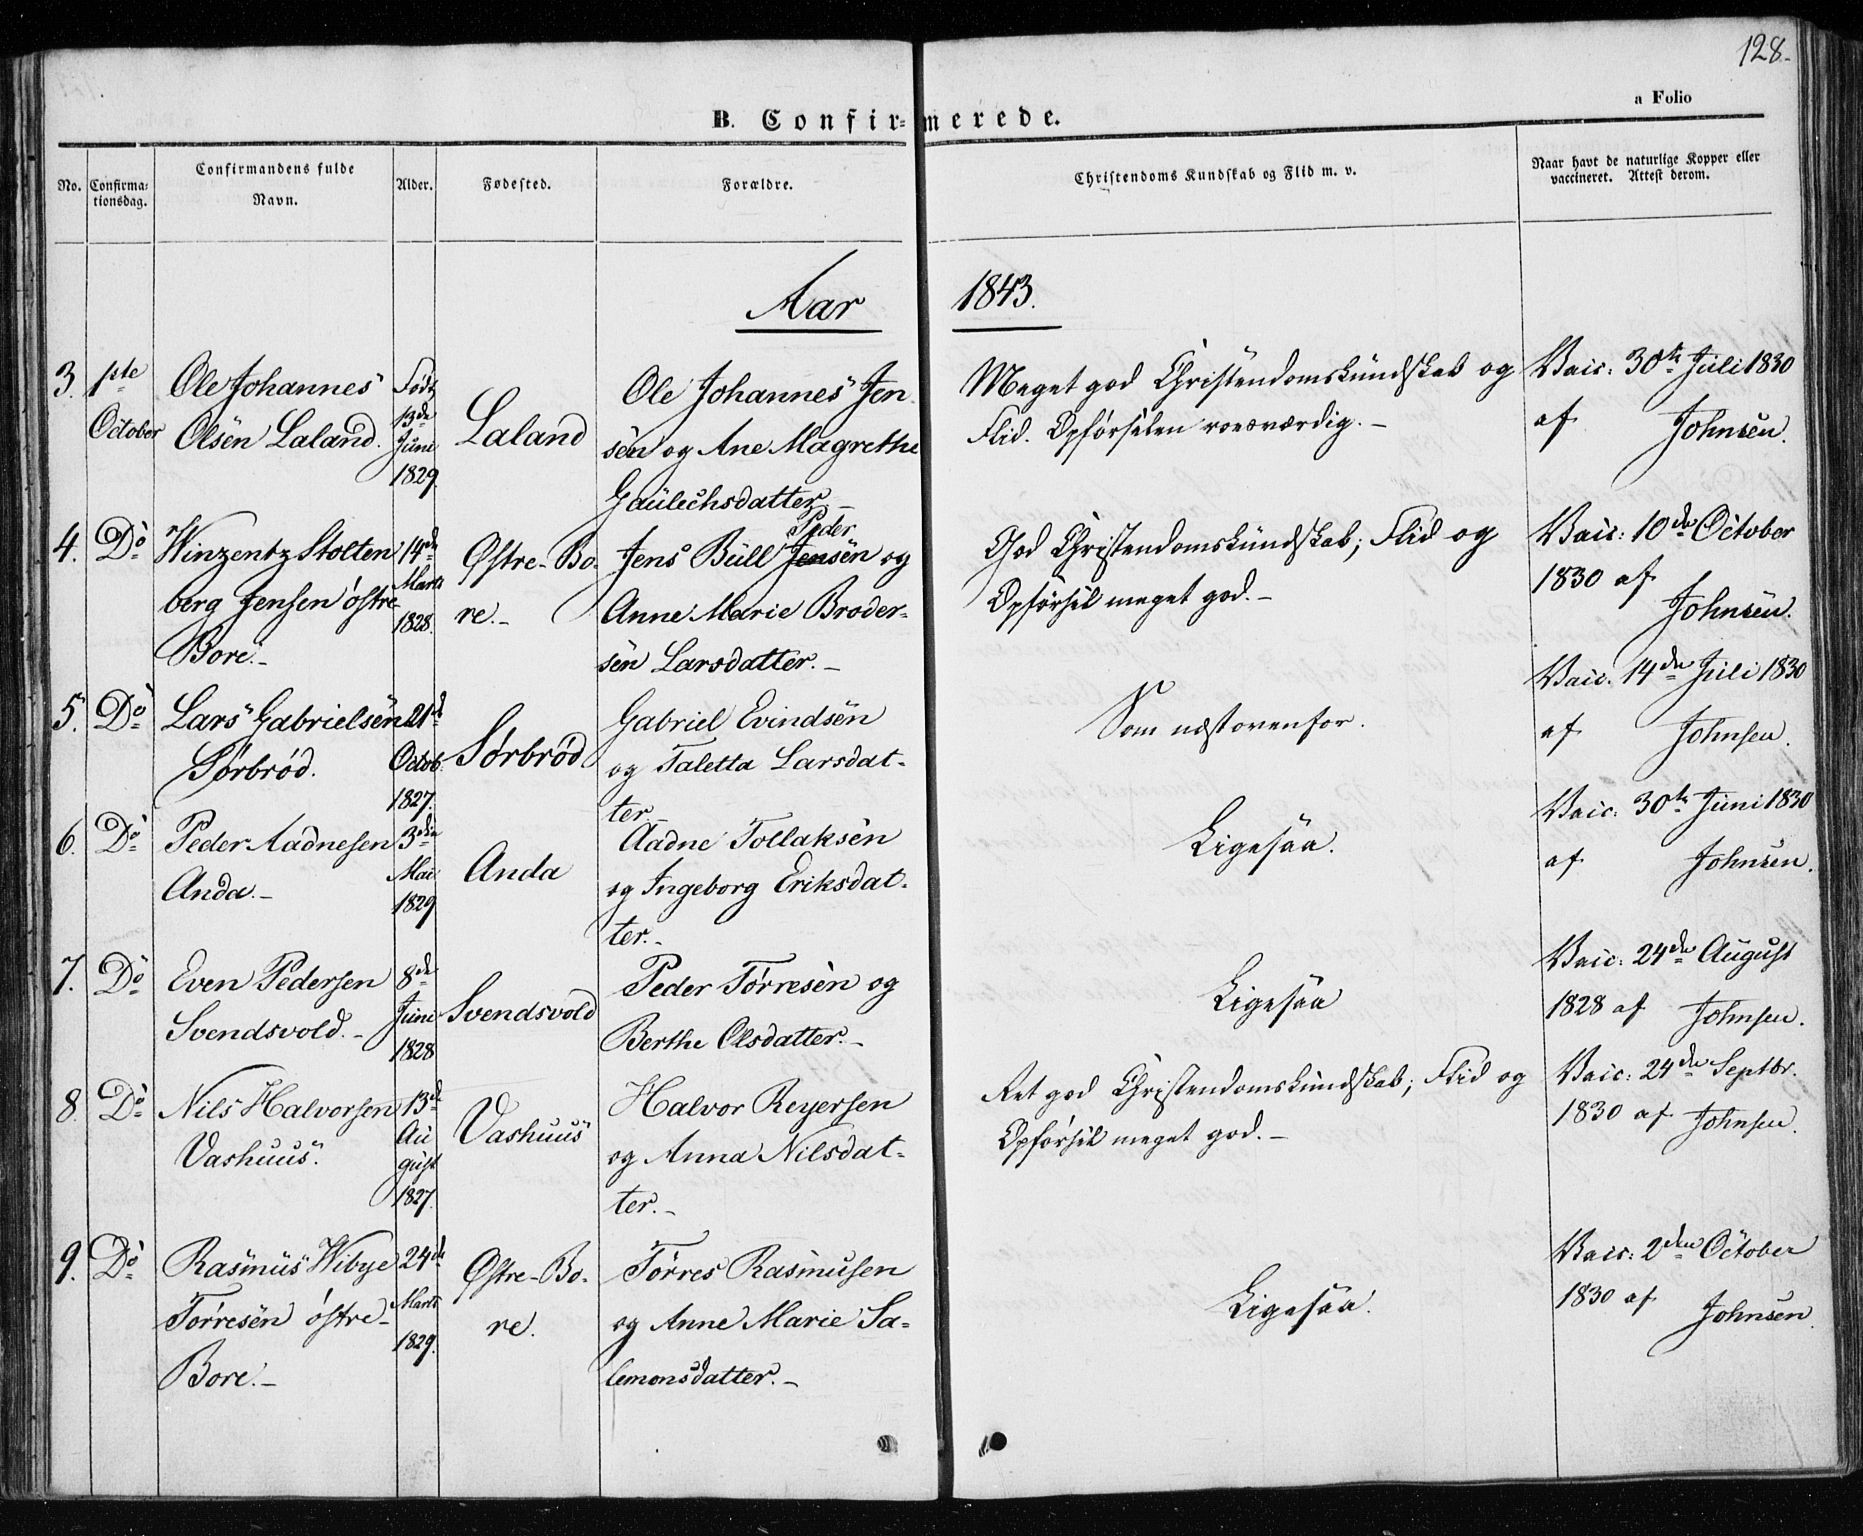 128.
a Folio
B. Confir= merede.
No.
Confirma-
tionsdag.
Confirmandens fulde
Navn.
Alder.
Fødested.
Forældre.
Christendoms Kundskab og Flid m. v.
Naar havt de naturlige Kopper eller
vaccineret. Attest derom.
Aar 1843.
3.
1ste
October
Ole Johannes
Olsen Laland.
Født
13de
Juni
1829.
Laland
Ole Johannes Jen
sen og Ane Magrethe
Gaulechsdatter. –
Meget god Christendomskundskab og
Flid. Opførselen roesværdig. –
Vacc: 30te Juli 1830
af Johnsen.
4.
Do
Winzentz Stolten
berg Jensen østre
Bore. –
14de
Marts
1828.
Østre-Bo-
re. –
Peder
Jens Bull Jensen og
Anne Marie Broder-
sen Larsdatter. –
God Christendomskundskab; Flid og
Opførsel meget god. –
Vacc: 10de October
1830 af
Johnsen.
5.
Do
Lars Gabrielsen
Sørbrød.
21de
Octob.
1827.
Sørbrød
Gabriel Evindsen
og Taletta Larsdat-
ter.
Som næstovenfor.
Vacc. 14de Juli 1830
af Johnsen.
6.
Do
Peder Aadnesen
Anda. –
3die
Mai
1829
Anda
Aadne Tollaksen
og Ingeborg Eriksdat-
ter. –
Ligesaa.
Vacc. 30te Juni 1830
af Johnsen.
7.
Do
Even Pedersen
Svendsvold. –
8de
Juni
1828
Svendsvold
Peder Tørresen og
Berthe Olsdatter. –
Ligesaa
Vacc: 24de August
1828 af Johnsen.
8.
Do
Nils Halvorsen
Vashuus.
13de
Au
gust
1827.
Vashuus
Halvor Reyersen
og Anna Nilsdat-
ter. –
Ret god Christendomskundskab; Flid og
Opførsel meget god. –
Vacc: 24de Septbr.
1830 af Johnsen.
9.
Do
Rasmus Wibye
Tørresen østre-
Bore. –
24de
Marts
1829.
Østre-Bo-
re.
Tørres Rasmusen
og Anne Marie Sa-
lemonsdatter. –
Ligesaa.
Vacc: 2den October
1830 af
Johnsen.